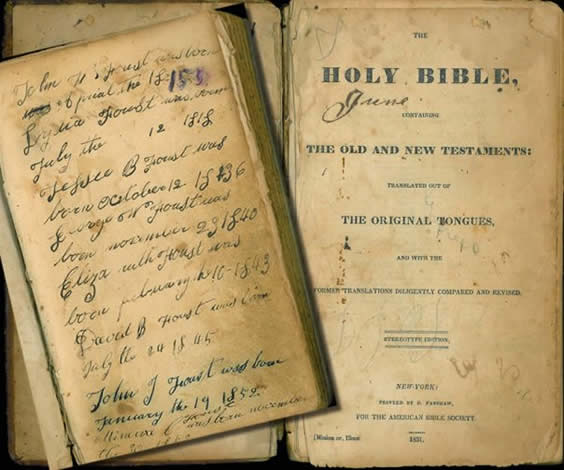 John H Foust was born
April the 18 155
Lydia Foust was born
July the 12 1818
Jessee B Foust was
born October 12 1836
George W Foust was
born november 23 1840
Eliza ruth Foust was
born february the 10 1843
David B Foust was born
July the 24 1845
John J Foust was born
January the 19 1852
Foust
was born november
THE
HOLY BIBLE,
June
CONTAINING
THE OLD AND NEW TESTAMENTS:
TRANSLATED OUT OF
THE ORIGINAL TONGUES,
AND WITH THE
FORMER TRANSLATIONS DILIGENTLY COMPARED AND REVISED.
STEREOTYPE EDITION,
NEW-YORK:
PRINTED BY D. FANSHAW,
FOR THE AMERICAN BIBLE SOCIETY.
1831.